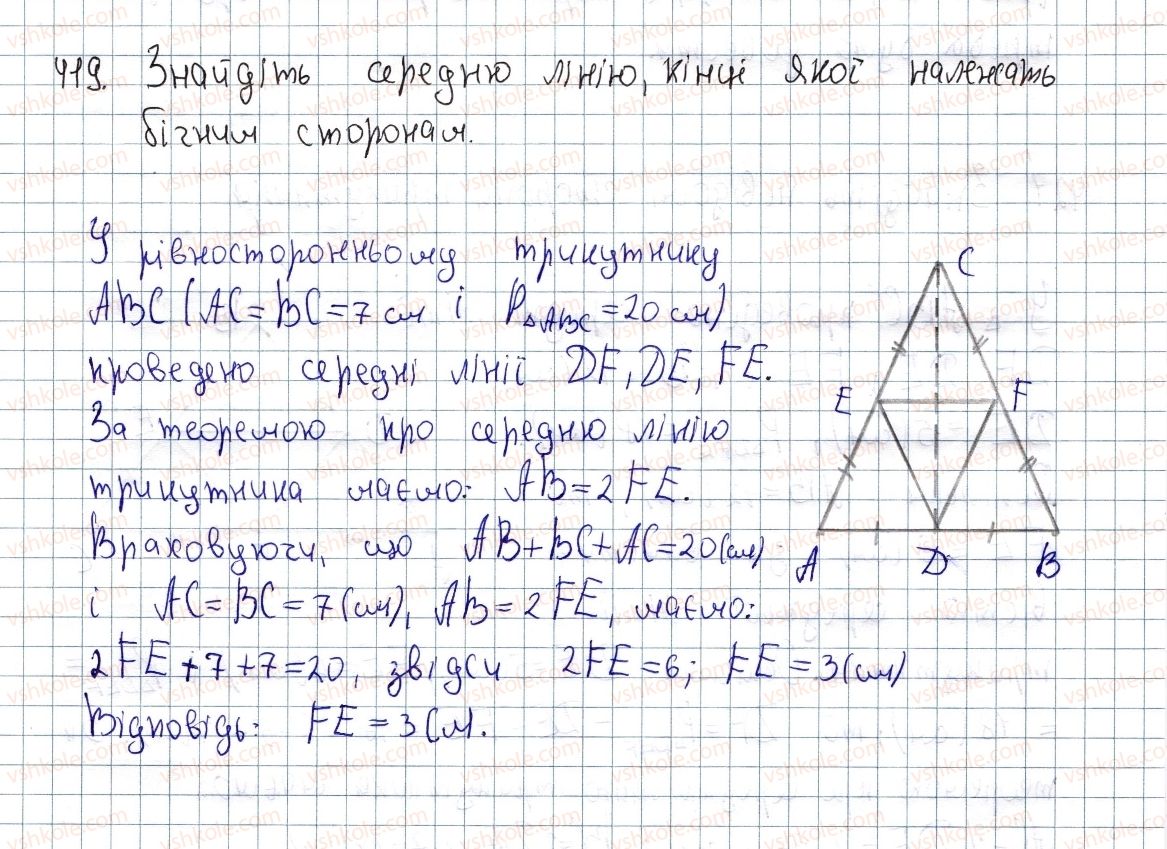 419. Знайдіть середню лінію, кінці якої належать
бічним сторонам.
У рівносторонньому трикутнику
ABC (AC = BC = 7 см і P△ABC = 20 см)
проведено середні лінії DF, DE, FE.
За теоремою про середню лінію
трикутника маємо: AB = 2 FE.
Враховуючи, що AB + BC + AC = 20 (см)
і AC = BC = 7 (см), AB = 2 FE, маємо:
2 FE + 7 + 7 = 20, звідси 2FE = 6; FE = 3 (см)
Відповідь: FE = 3 см.
C
E F
A D B